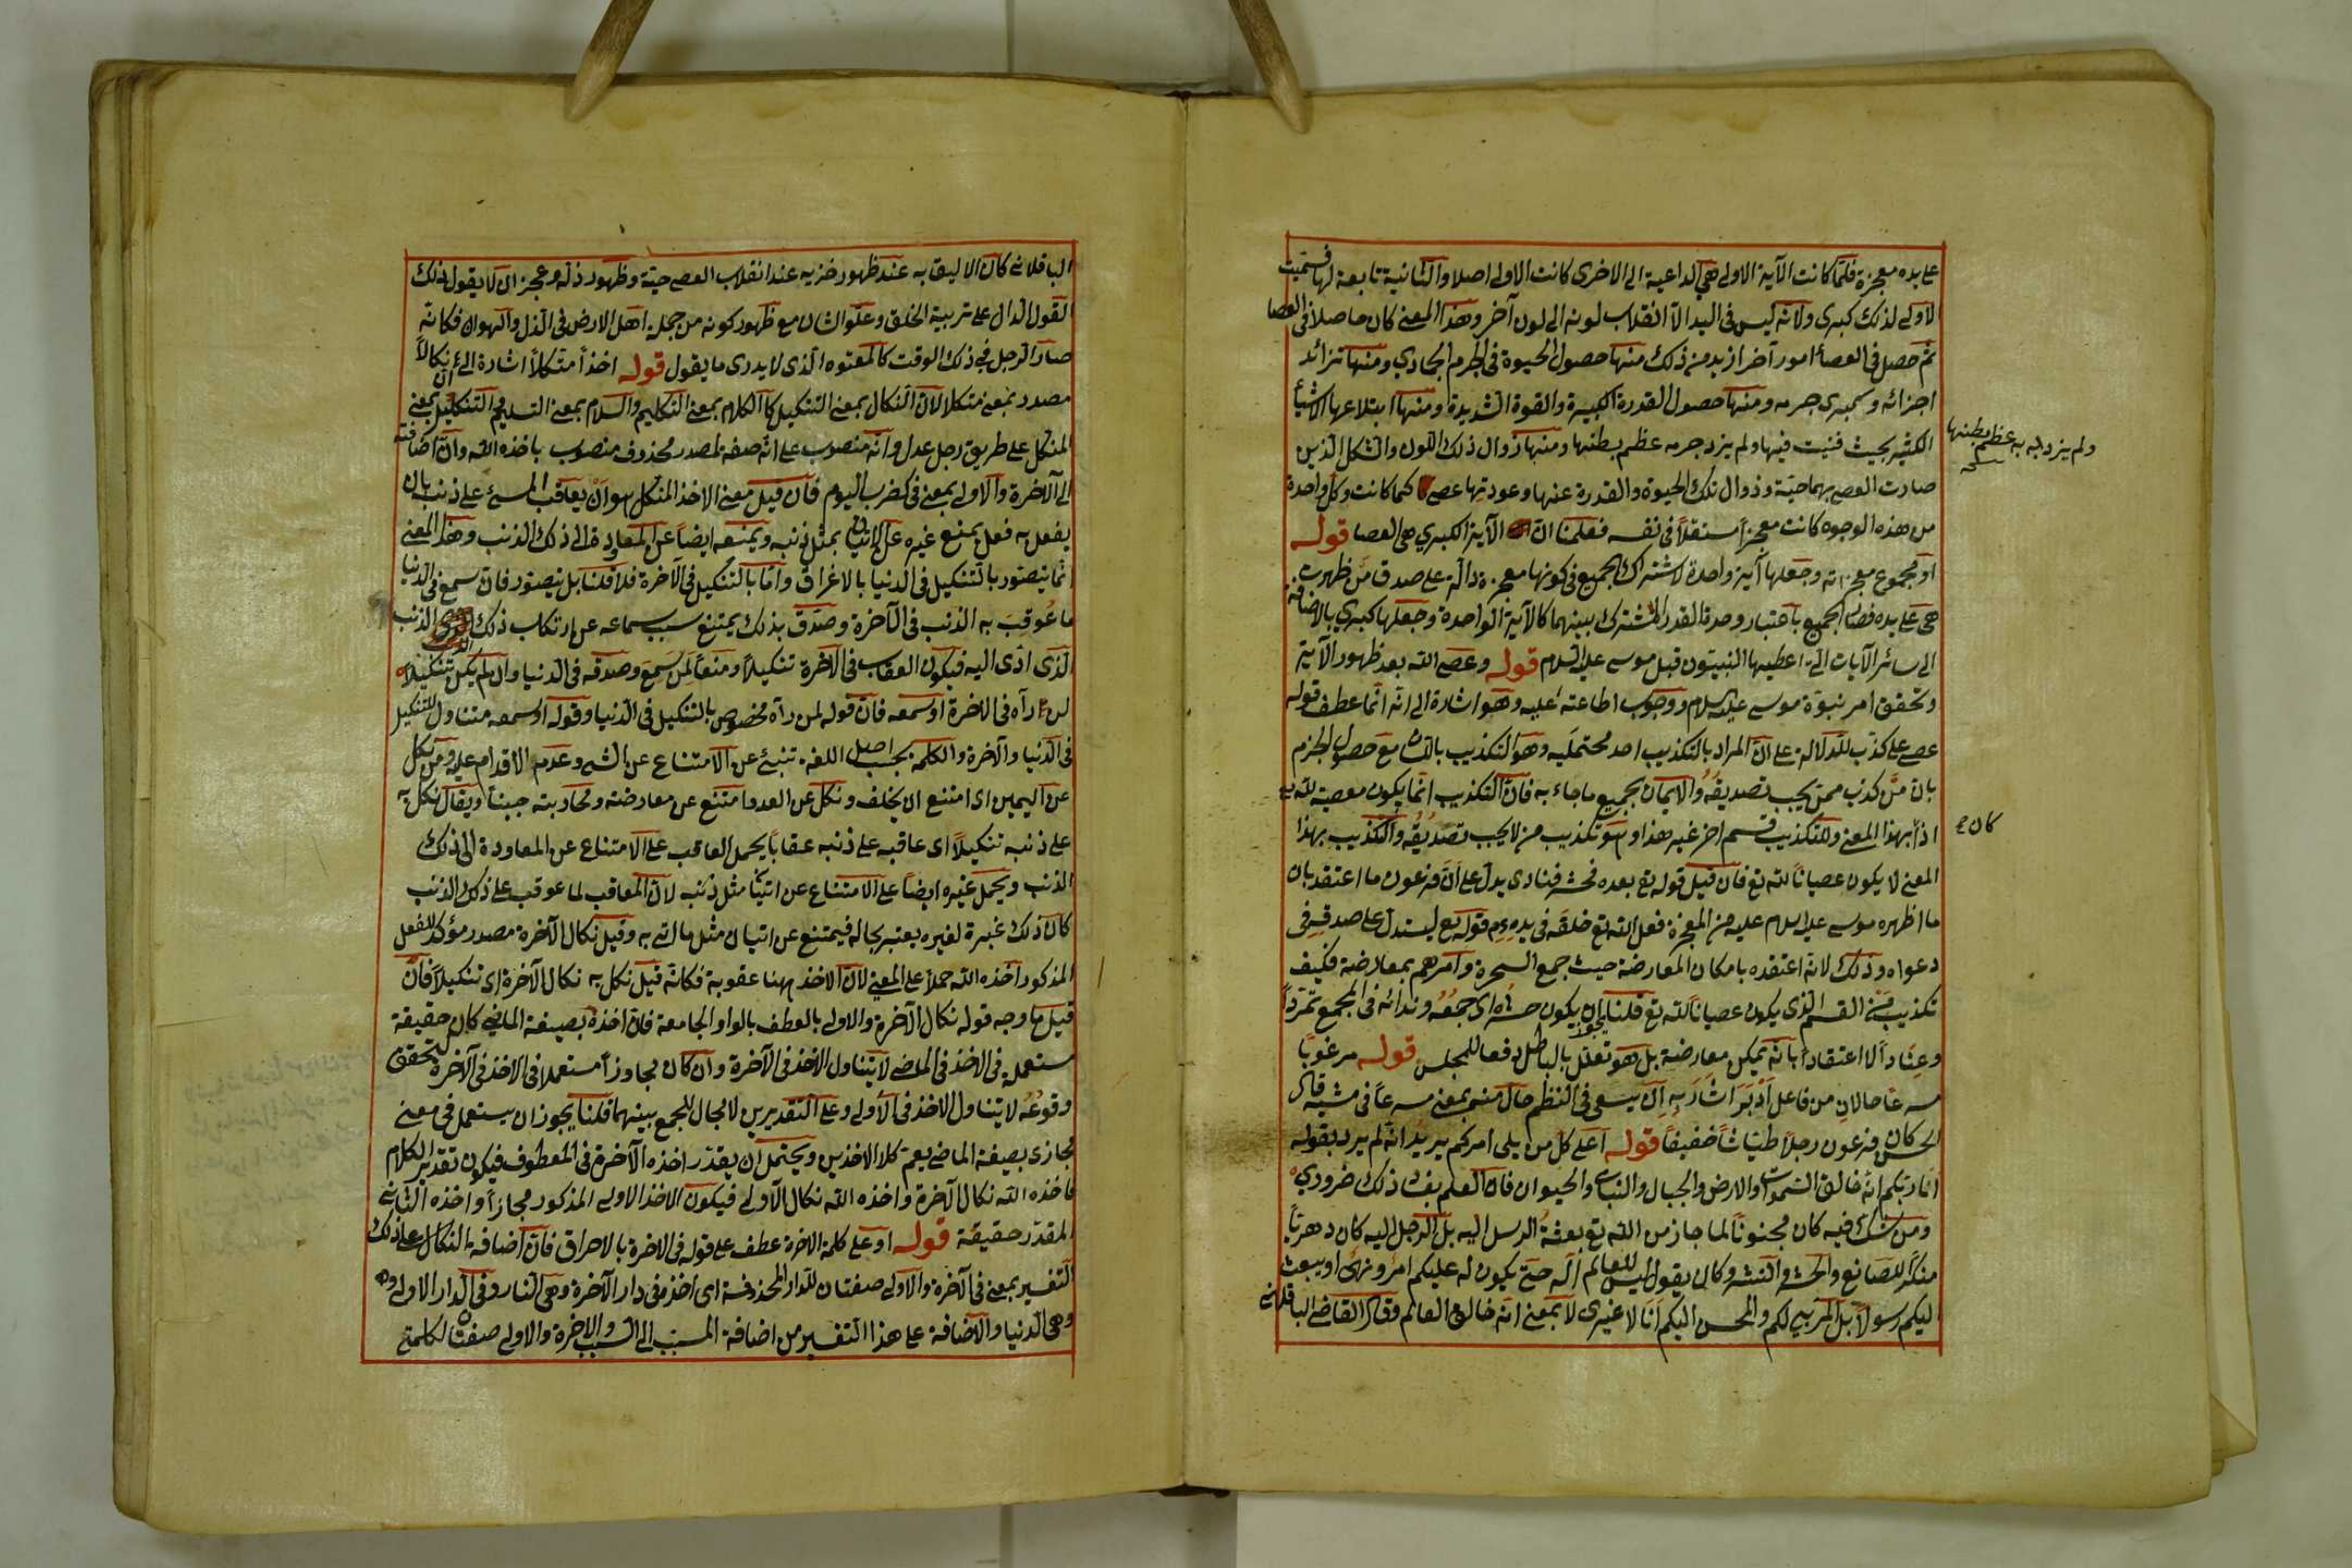 على يده معجزة فلما كانت الآية الاولى هي الداعية الى الاخرى كانت الاولى اصلا والثانية تابعة لها فسميت
الاولى لذلك كبرى ولانه ليس في اليد الا انقلاب لونه الى لون آخر وهذا المعنى كان حاصلا في العصا
ثم حصل في العصا امور آخر ازيد من ذلك منها حصول الحيوة في الجرم الجمادي ومنها تزائد
اجزائه وسمبرى جرمه ومنها حصول القدرة الكبيرة والقوة الشديدة ومنها ابتلاعها الاشياء
الكثيرة بحيث فنيت فيها ولم يزد جرمه عظم بطنها ومنها زوال ذلك اللون والشكل الذين
صارت العصى بهما حية وزوال تلك الحيوة والقدرة عنها وعودتها عصا كما كانت وكل واحدة
من هذه الوجوه كانت معجزا مستقلا في نفسه فعلمنا ان الآية الكبرى هي العصا قوله
او مجموع معجزاته وجعلها آية واحدة لاشتراك الجميع في كونها معجزة دالة على صدق من ظهرت
هي على يده فصار الجميع باعتبار وحدة القدر المشترك بينهما كالآية الواحدة وجعلها كبرى بالاضافة
الى سائر الآيات التي اعطيها النبيون قبل موسى عليه السلام قوله وعصى الله بعد ظهور الآية
وتحقق امر نبوة موسى عليه السلام ووجوب اطاعته عليه وهو اشارة الى انه انما عطف قوله
عصى على كذب للدلالة على ان المراد بالتكذيب احد محتمليه وهو التكذيب باللسان مع حصول الجزم
بان من كذب ممن يجب تصديقه والايمان بجميع ما جاء به فان التكذيب انما يكون معصية لله تع
اذا بهذا المعنى وللتكذيب قسم اخر غير هذا وهو تكذيب من لا يجب تصديقه والتكذيب بهذا
المعنى لا يكون عصيانا لله تع فان قيل قوله تع بعده فحشر فنادى يدل على ان فرعون ما اعتقد بان
ما اظهره موسى عليه السلام عليه من المعجزة فعل الله تع خلقه في يده قوله تع ليستدل على صدقه في
دعواه وذلك لانه اعتقده بامكان المعارضة حيث جمع السحرة وامرهم بمعارضة فكيف
تكذيب من القسم الذي يكون عصيانا لله تع قلنا يجوز ان يكون حشره اى جمعه وندائه في المجمع تمردا
وعنادا لا اعتقادا بانه يمكن معارضة بل هو تعلل بالباطل دفعا للمجلس قوله مرعوبا
مسرعا حالان من فاعل ادبر اشار به ان يسعى في النظم حال منه بمعنى مسرعا في مشيه قال
الحسن كان فرعون رجلا طياشا خفيفا قوله اعلى كل من يلى امركم يريد انه لم يرد بقوله
انا ربكم انه خالق السموات والارض والجبال والنبات والحيوان فان العلم بفساد ذلك ضروري
ومن شك فيه كان مجنونا لما جاز من الله تع بعثة الرسل اليه بل الرجل اليه كان دهريا
منكرا للصانع والحشر والنشر وكان يقول ليس للعالم اله حتى يكون له عليكم امر ونهى او يبعث
اليكم رسولا بل المربي لكم والمحسن اليكم انا لا غيرى لا بمعنى انه خالق العالم وقال القاضي الباقلاني
ولم يزد به عظم بطنها
كان
الباقلاني كان الاليق به عند ظهور خزيه عند انقلاب العصى حية وظهور ذله وعجزه ان لا يقول لذلك
القول الدال على تربية الخلق وعلو الشان مع ظهور كونه من جملة اهل الارض في الذل والهوان فكانه
صار الرجل في ذلك الوقت كالمعتوه الذي لا يدرى ما يقول قوله اخذا منكلا اشارة الى ان نكالا
مصدر بمعنى منكلا لان النكال بمعنى التنكيل كالكلام بمعنى التكليم والسلام بمعنى التسليم والتنكيل بمعنى
المنكل على طريق رجل عدل وانه منصوب على انه صفة لمصدر محذوف منصوب باخذه الله وان اضافته
الى الآخرة والاولى بمعنى في كضرب اليوم فان قيل معنى الاخذ المنكل هو ان يعاقب المسئ على ذنب بان
يفعل به فعل يمنع غيره عن الاتيان بمثل ذنبه ويمنعه ايضا عن المعاودة الى ذلك الذنب وهذا المعنى
انما يتصور بالتنكيل في الدنيا بالاغراق واما بالتنكيل في الآخرة فلا قلنا بل يتصور فان سمع في الدنيا
ما عوقب به الذنب في الآخرة وصدق بذلك يمتنع بسبب سماعه عن ارتكاب ذلك الذنب
الذى ادى اليه فيكون العقاب في الآخرة تنكيلا ومنعا لمن سمع وصدقه في الدنيا وان لم يكن تنكيلا
لمن رآه في الآخرة او سمعه فان قوله لمن رآه مخصوص بالتنكيل في الدنيا وقوله او سمعه متناول للتنكيل
في الدنيا والآخرة والكلمة بحسب اصل اللغة تنبئ عن الامتناع عن الشئ وعدم الاقدام عليه ومن نكل
عن اليمين اى امتنع ان يحلف ونكل عن العدو امتنع عن معارضته ومحاربته جبنا ويقال نكل به
على ذنبه تنكيلا اى عاقبه على ذنبه عقابا يحمل المعاقب على الامتناع عن المعاودة الى ذلك
الذنب ويحمل غيره ايضا على الامتناع عن اتيان مثل ذنبه لان المعاقب لما عوقب على ذلك الذنب
كان ذلك عبرة لغيره يعتبر بحاله فيمتنع عن اتيان مثل ما اتى به وقيل نكال الآخرة مصدر مؤكد للفعل
المذكور اخذه الله حملا على المعنى لان الاخذ ههنا عقوبة فكانه قيل نكل به نكال الآخرة اى تنكيلا فان
قيل ما وجه قوله نكال الآخرة والاولى بالعطف بالواو الجامعة فان اخذه بصيغة الماضي كان حقيقة
مستعملة في الاخذ في الماضي لا يتناول الاخذ في الآخرة وان كان مجازا مستعملا في الاخذ في الآخرة لتحقق
وقوعه لا يتناول الاخذ في الاولى وعلى التقديرين لا مجال للجمع بينهما قلنا يجوز ان يستعمل في معنى
مجازى بصيغة الماضي يعم كلا الاخذين ويحتمل ان يقدر اخذه الآخرة في المعطوف فيكون تقدير الكلام
فاخذه الله نكال الآخرة واخذه الله نكال الاولى فيكون الاخذ الاولى المذكور مجازا واخذه الثاني
المقدر حقيقة قوله او على كلمة الآخرة عطف على قوله في الآخرة بالاحراق فان اضافة النكال على ذلك
التفسير بمعنى في الآخرة والاولى صفتان للدار المحذوفة اى اخذه في دار الآخرة وهي النار وفي الدار الاولى وهي
وهي الدنيا والاضافة على هذا التفسير من اضافة المسبب الى السبب والآخرة والاولى صفتا لكلمتي